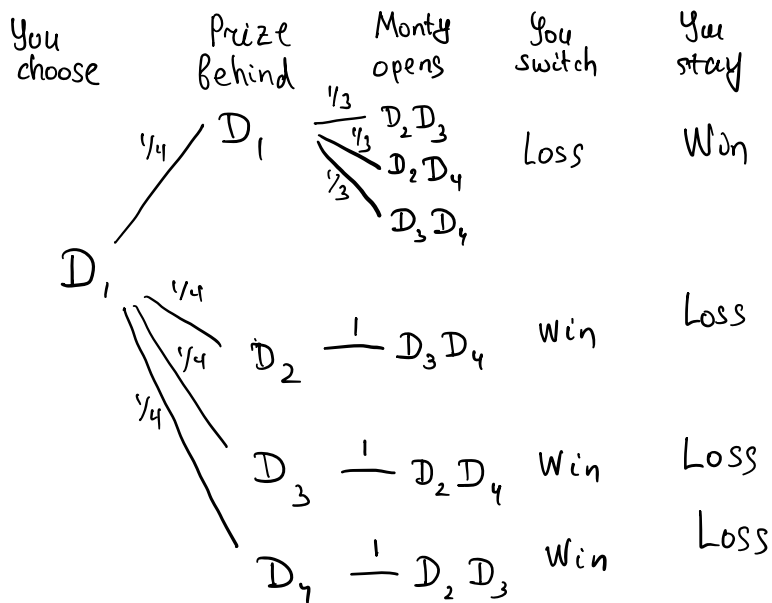 You choose
Prize behind
Monty opens
You switch
You stay
1/4
D₁
1/3
D₂D₃
1/3
D₂D₄
1/3
D₃D₄
Loss
Win
D₁
1/4
D₂
1
D₃D₄
Win
Loss
1/4
D₃
1
D₂D₄
Win
Loss
1/4
D₄
1
D₂D₃
Win
Loss